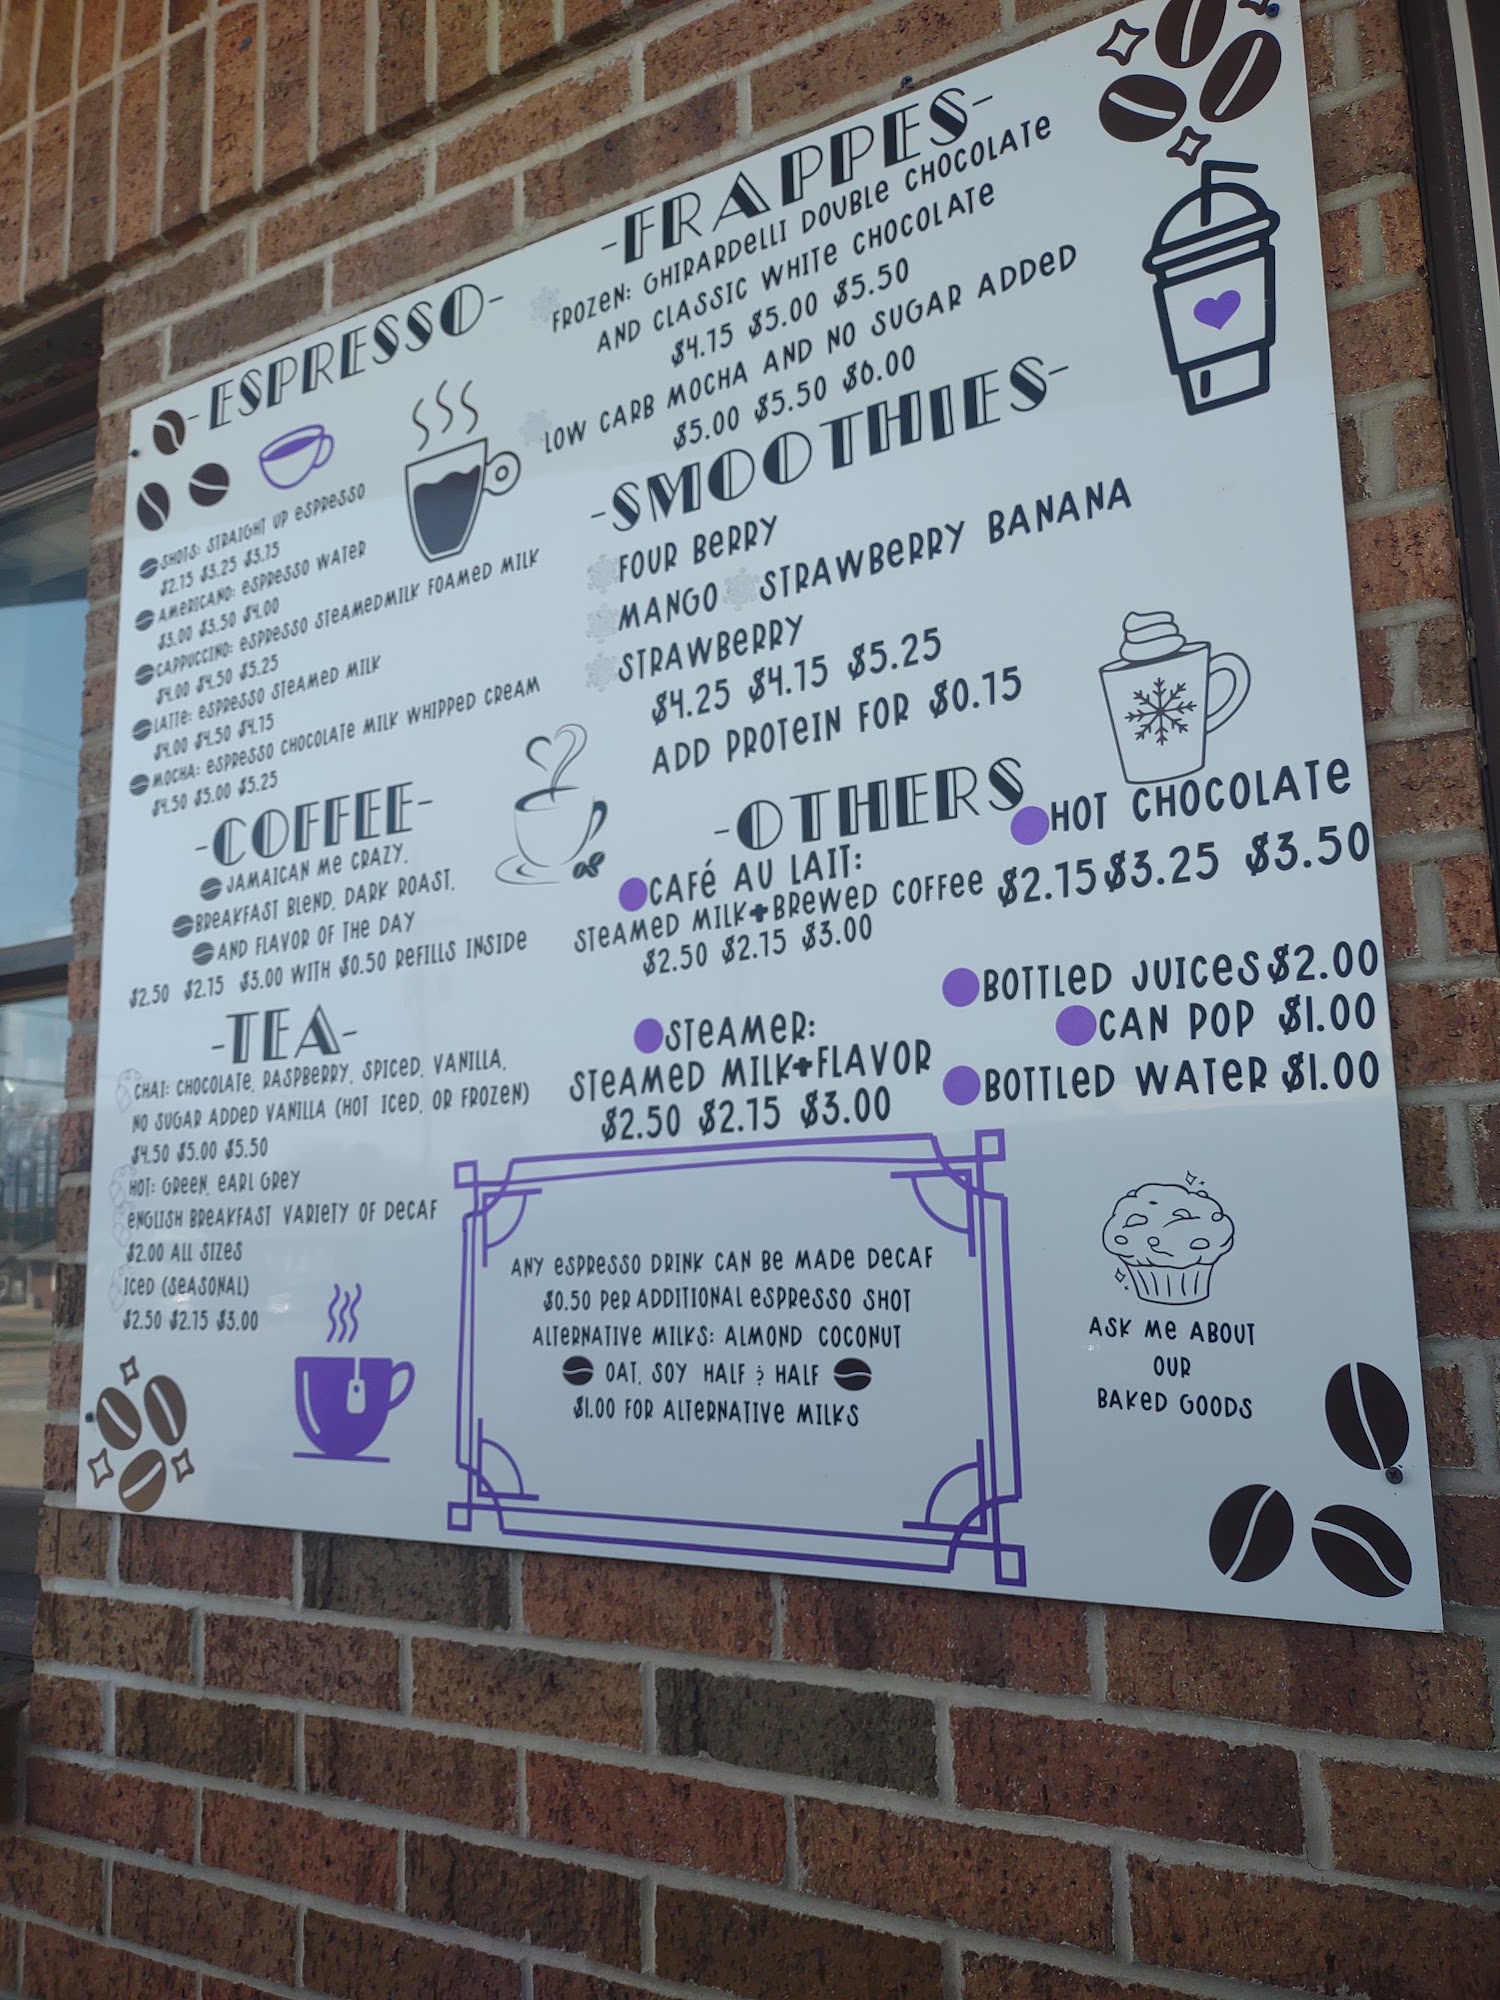 -ESPRESSO-
SHOTS: STRAIGHT UP ESPRESSO
$2.75 $3.25 $3.75
AMERICANO: ESPRESSO WATER
$3.00 $3.50 $4.00
CAPPUCCINO: ESPRESSO STEAMEDMILK FOAMED MILK
$4.00 $4.50 $5.25
LATTE: ESPRESSO STEAMED MILK
$4.00 $4.50 $4.75
MOCHA: ESPRESSO CHOCOLATE MILK WHIPPED CREAM
$4.50 $5.00 $5.25
-COFFEE-
JAMAICAN ME CRAZY,
BREAKFAST BLEND, DARK ROAST,
AND FLAVOR OF THE DAY
$2.50 $2.75 $3.00 WITH $0.50 REFILLS INSIDE
-TEA-
CHAI: CHOCOLATE, RASPBERRY, SPICED, VANILLA,
NO SUGAR ADDED VANILLA (HOT ICED, OR FROZEN)
$4.50 $5.00 $5.50
HOT: GREEN, EARL GREY
ENGLISH BREAKFAST VARIETY OF DECAF
$2.00 ALL SIZES
ICED (SEASONAL)
$2.50 $2.75 $3.00
-FRAPPES-
FROZEN: GHIRARDELLI DOUBLE CHOCOLATE
AND CLASSIC WHITE CHOCOLATE
$4.75 $5.00 $5.50
LOW CARB MOCHA AND NO SUGAR ADDED
$5.00 $5.50 $6.00
-SMOOTHIES-
FOUR BERRY
MANGO STRAWBERRY BANANA
STRAWBERRY
$4.25 $4.75 $5.25
ADD PROTEIN FOR $0.75
-OTHERS
CAFÉ AU LAIT:
STEAMED MILK+BREWED COFFEE
$2.50 $2.75 $3.00
STEAMER:
STEAMED MILK+FLAVOR
$2.50 $2.75 $3.00
HOT CHOCOLATE
$2.75 $3.25 $3.50
BOTTLED JUICES $2.00
CAN POP $1.00
BOTTLED WATER $1.00
ANY ESPRESSO DRINK CAN BE MADE DECAF
$0.50 PER ADDITIONAL ESPRESSO SHOT
ALTERNATIVE MILKS: ALMOND COCONUT
OAT, SOY HALF & HALF
$1.00 FOR ALTERNATIVE MILKS
ASK ME ABOUT
OUR
BAKED GOODS